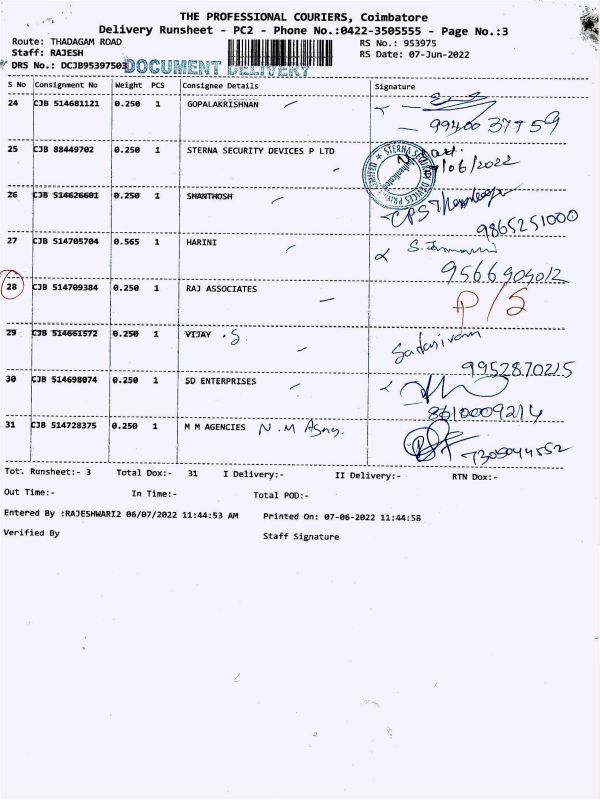 THE PROFESSIONAL COURIERS, Coimbatore
Delivery Runsheet - PC2 - Phone No.:0422-3505555 - Page No.:3
Route: THADAGAM ROAD RS No.: 953975
Staff: RAJESH RS Date: 07-Jun-2022
DRS No.: DCJB95397503 DOCUMENT DELIVERY
S No Consignment No Weight PCS Consignee Details Signature
24 CJB 514681121 0.250 1 GOPALAKRISHNAN
99400 37759
25 CJB 88449702 0.250 1 STERNA SECURITY DEVICES P LTD
STERNA SECURITY DEVICES PRIVATE LIMITED
/06/2022
26 CJB 514626601 0.250 1 SHANTHOSH
9865251000
27 CJB 514705704 0.565 1 HARINI
9566909012
28 CJB 514709384 0.250 1 RAJ ASSOCIATES P/S
29 CJB 514661572 0.250 1 VIJAY .S
Sadasivam
9952870215
30 CJB 514698074 0.250 1 SD ENTERPRISES
8610009214
31 CJB 514728375 0.250 1 M M AGENCIES N.M
Tot. Runsheet:- 3 Total Dox:- 31 I Delivery:- II Delivery:- RTN Dox:-
Out Time:- In Time:- Total POD:-
Entered By :RAJESHWARI2 06/07/2022 11:44:53 AM Printed On: 07-06-2022 11:44:58
Verified By Staff Signature